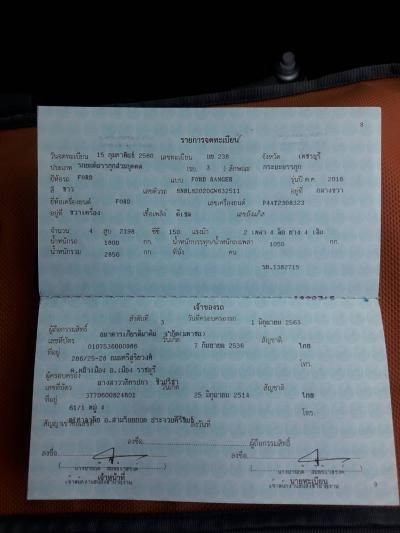 8
รายการจดทะเบียน
วันจดทะเบียน 15 กุมภาพันธ์ 2560 เลขทะเบียน 238 จังหวัด เพชรบุรี
ประเภท รถยนต์บรรทุกส่วนบุคคล (รย. 3 ) ลักษณะ กระบะบรรทุก
ยี่ห้อรถ FORD แบบ FORD RANGER รุ่นปี ค.ศ. 2016
สี ขาว เลขตัวรถ อยู่ที่ กลางขวา
ยี่ห้อเครื่องยนต์ FORD เลขเครื่องยนต์ P4AT2308323
อยู่ที่ ขวาเครื่อง เชื้อเพลิง ดีเซล เลขถังแก๊ส
จำนวน 4 สูบ 2198 ซีซี 150 แรงม้า 2 เพลา 4 ล้อ ยาง 4 เส้น
น้ำหนักรถ 1800 กก. น้ำหนักบรรทุก/น้ำหนักลงเพลา 1050 กก.
น้ำหนักรวม 2850 กก. ที่นั่ง คน
เจ้าของรถ
ลำดับที่ 3 วันที่ครอบครองรถ 1 มิถุนายน 2563
ผู้ถือกรรมสิทธิ์ ธนาคารเกียรตินาคิน จำกัด(มหาชน)
เลขที่บัตร 0107536000986 วันเกิด 7 กันยายน 2536 สัญชาติ ไทย
ที่อยู่ 286/25-28 ถนนศรีสุริยวงศ์ โทร.
ต.หน้าเมือง อ.เมือง ราชบุรี
ผู้ครอบครอง นางสาว
เลขที่บัตร 3770600824801 วันเกิด 25 มิถุนายน 2514 สัญชาติ ไทย
ที่อยู่ 61/1 หมู่ โทร.
อ.สามร้อยยอด ประจวบคีรีขันธ์
สัญญาเช่าซื้อเลขที่ ลงวันที่
ลงชื่อ ผู้ถือกรรมสิทธิ์
ลงชื่อ ลงชื่อ
เจ้าหน้าที่ นายทะเบียน
9